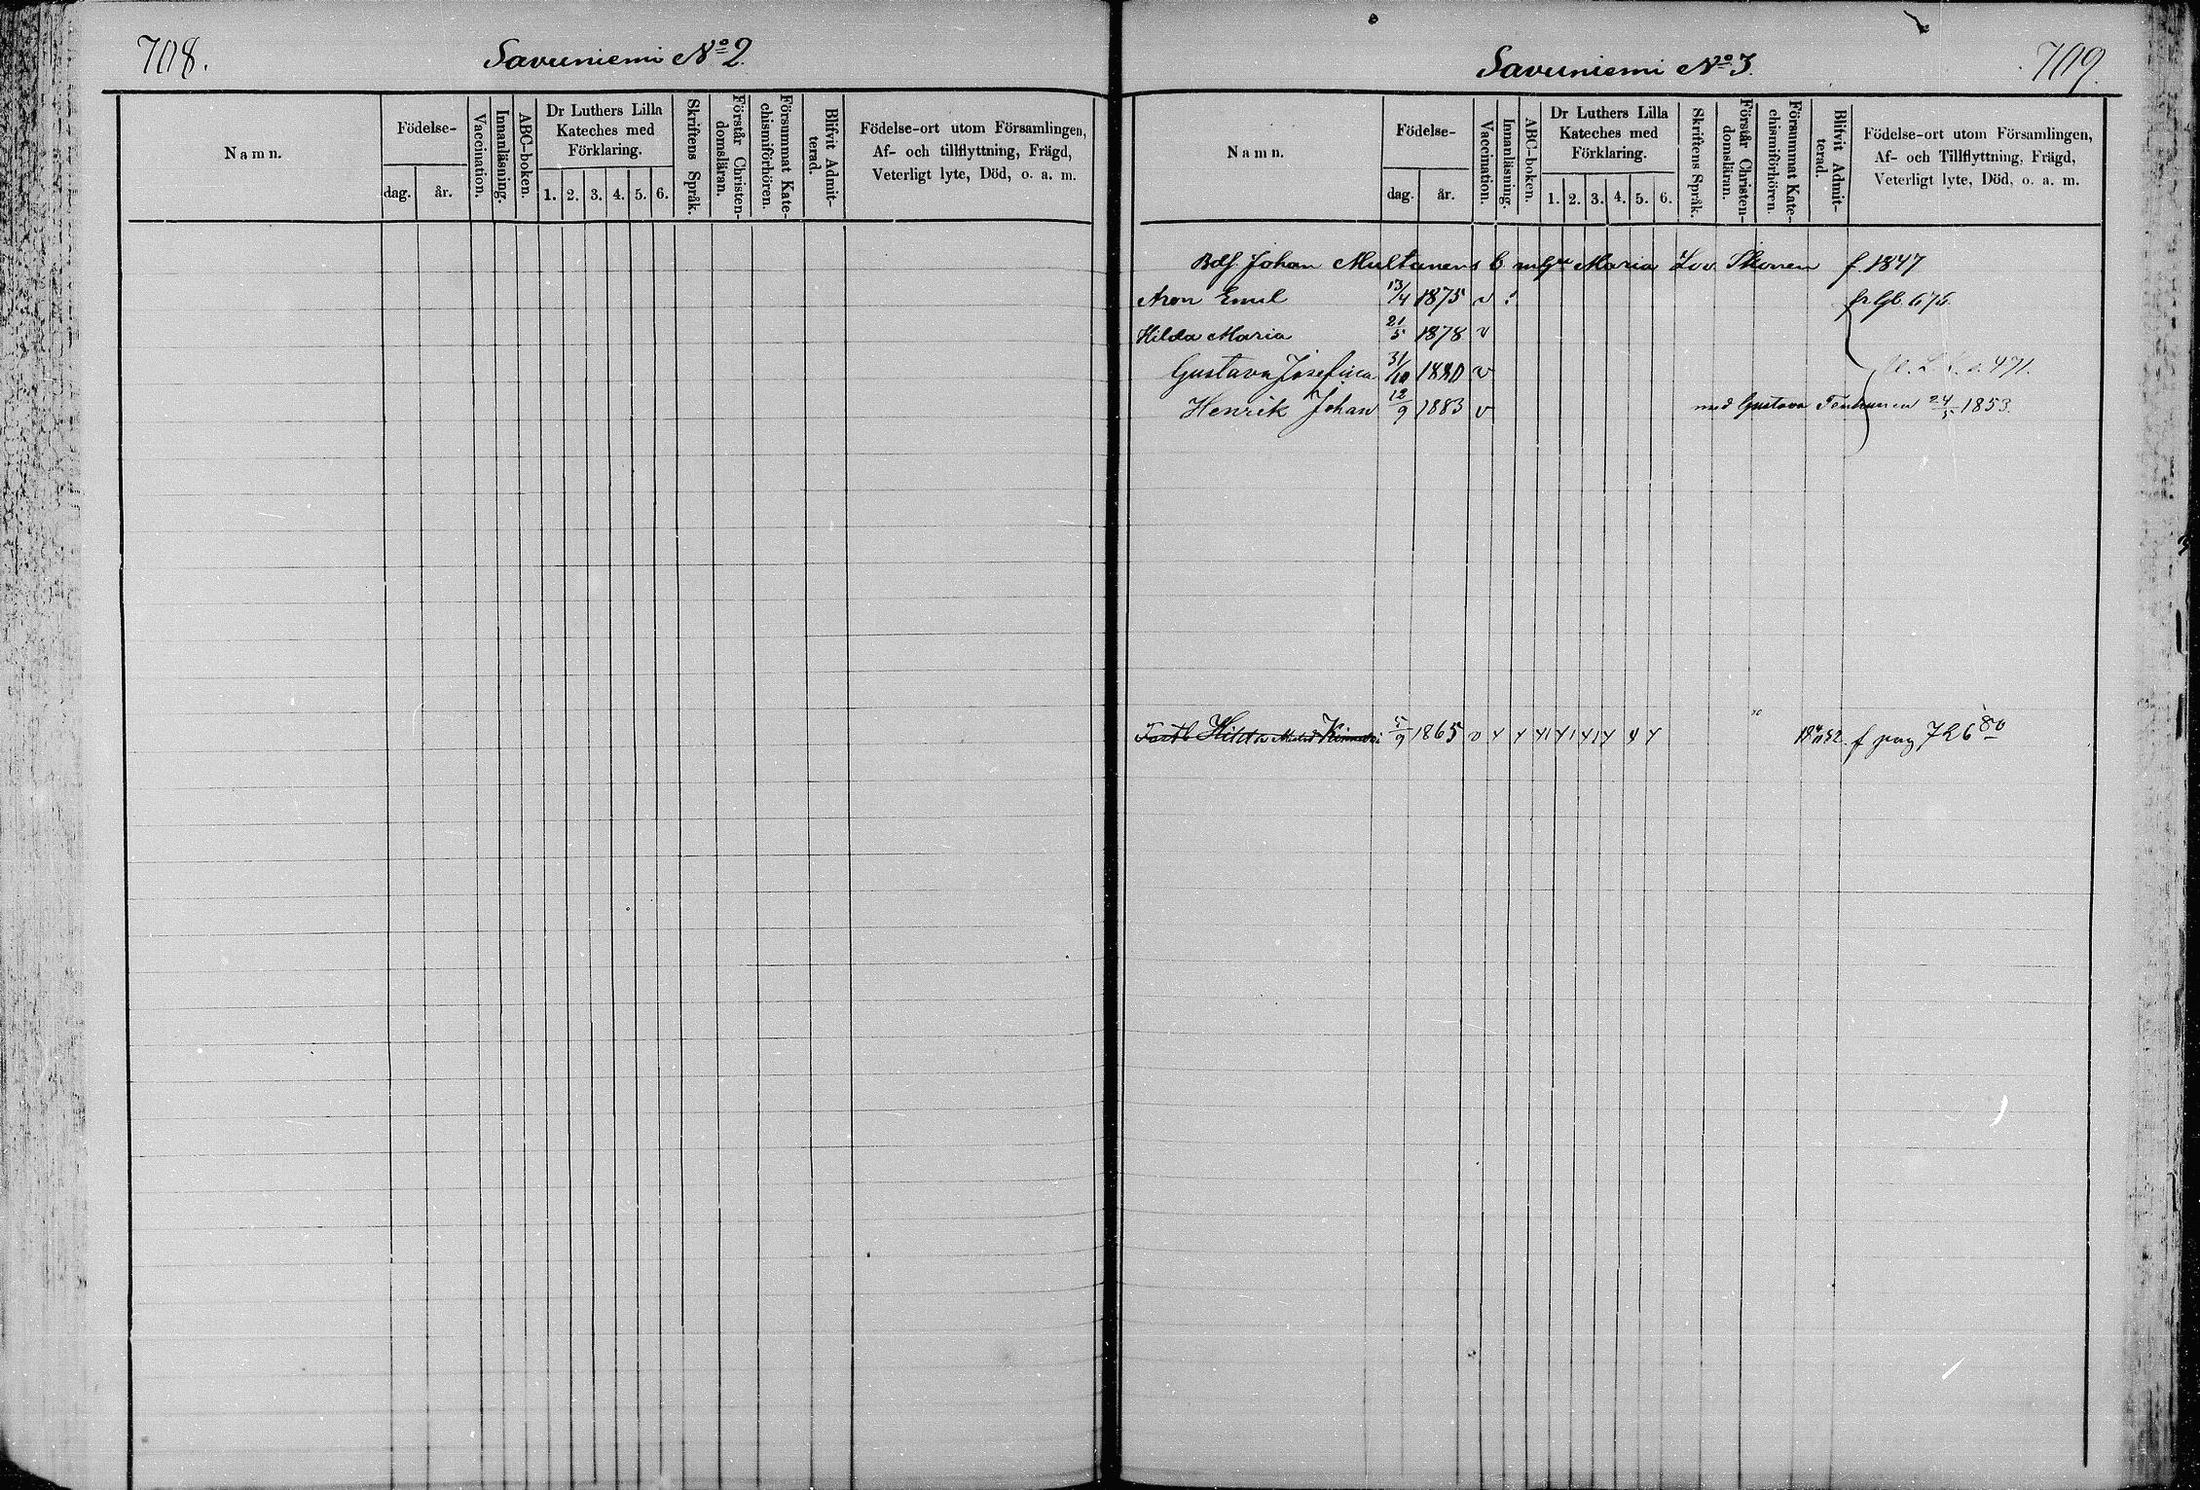 708.
Savuniemi No 2.
Namn.
Födelse-
dag.
år.
Vaccination.
Innanläsning.
ABC-boken.
Dr Luthers Lilla
Kateches med
Förklaring.
1. 2. 3. 4. 5. 6.
Skriftens Språk.
Förstår Christen-
domsläran.
Försummat Kate-
chismiförhören.
Blifvit Admit-
terad.
Födelse-ort utom Församlingen,
Af- och tillflyttning, Frägd,
Veterligt lyte, Död, o. a. m.
Savuniemi No 3.
709.
Namn.
Födelse-
dag.
år.
Vaccination.
Innanläsning.
ABC-boken.
Dr Luthers Lilla
Kateches med
Förklaring.
1. 2. 3. 4. 5. 6.
Skriftens Språk.
Förstår Christen-
domsläran.
Försummat Kate-
chismiförhören.
Blifvit Admit-
terad.
Födelse-ort utom Församlingen,
Af- och Tillflyttning, Frägd,
Veterligt lyte, Död, o. a. m.
Johan Multanens b Maria Lov f. 1847
Aron Emil 13/4 1875 v
Hilda Maria 21/5 1878 v
Gustava Josefina 31/10 1880 v 471.
Henrik Johan 12/9 1883 v med Gustava 1853.
Hilda 5/9 1865 v f pag 726 80